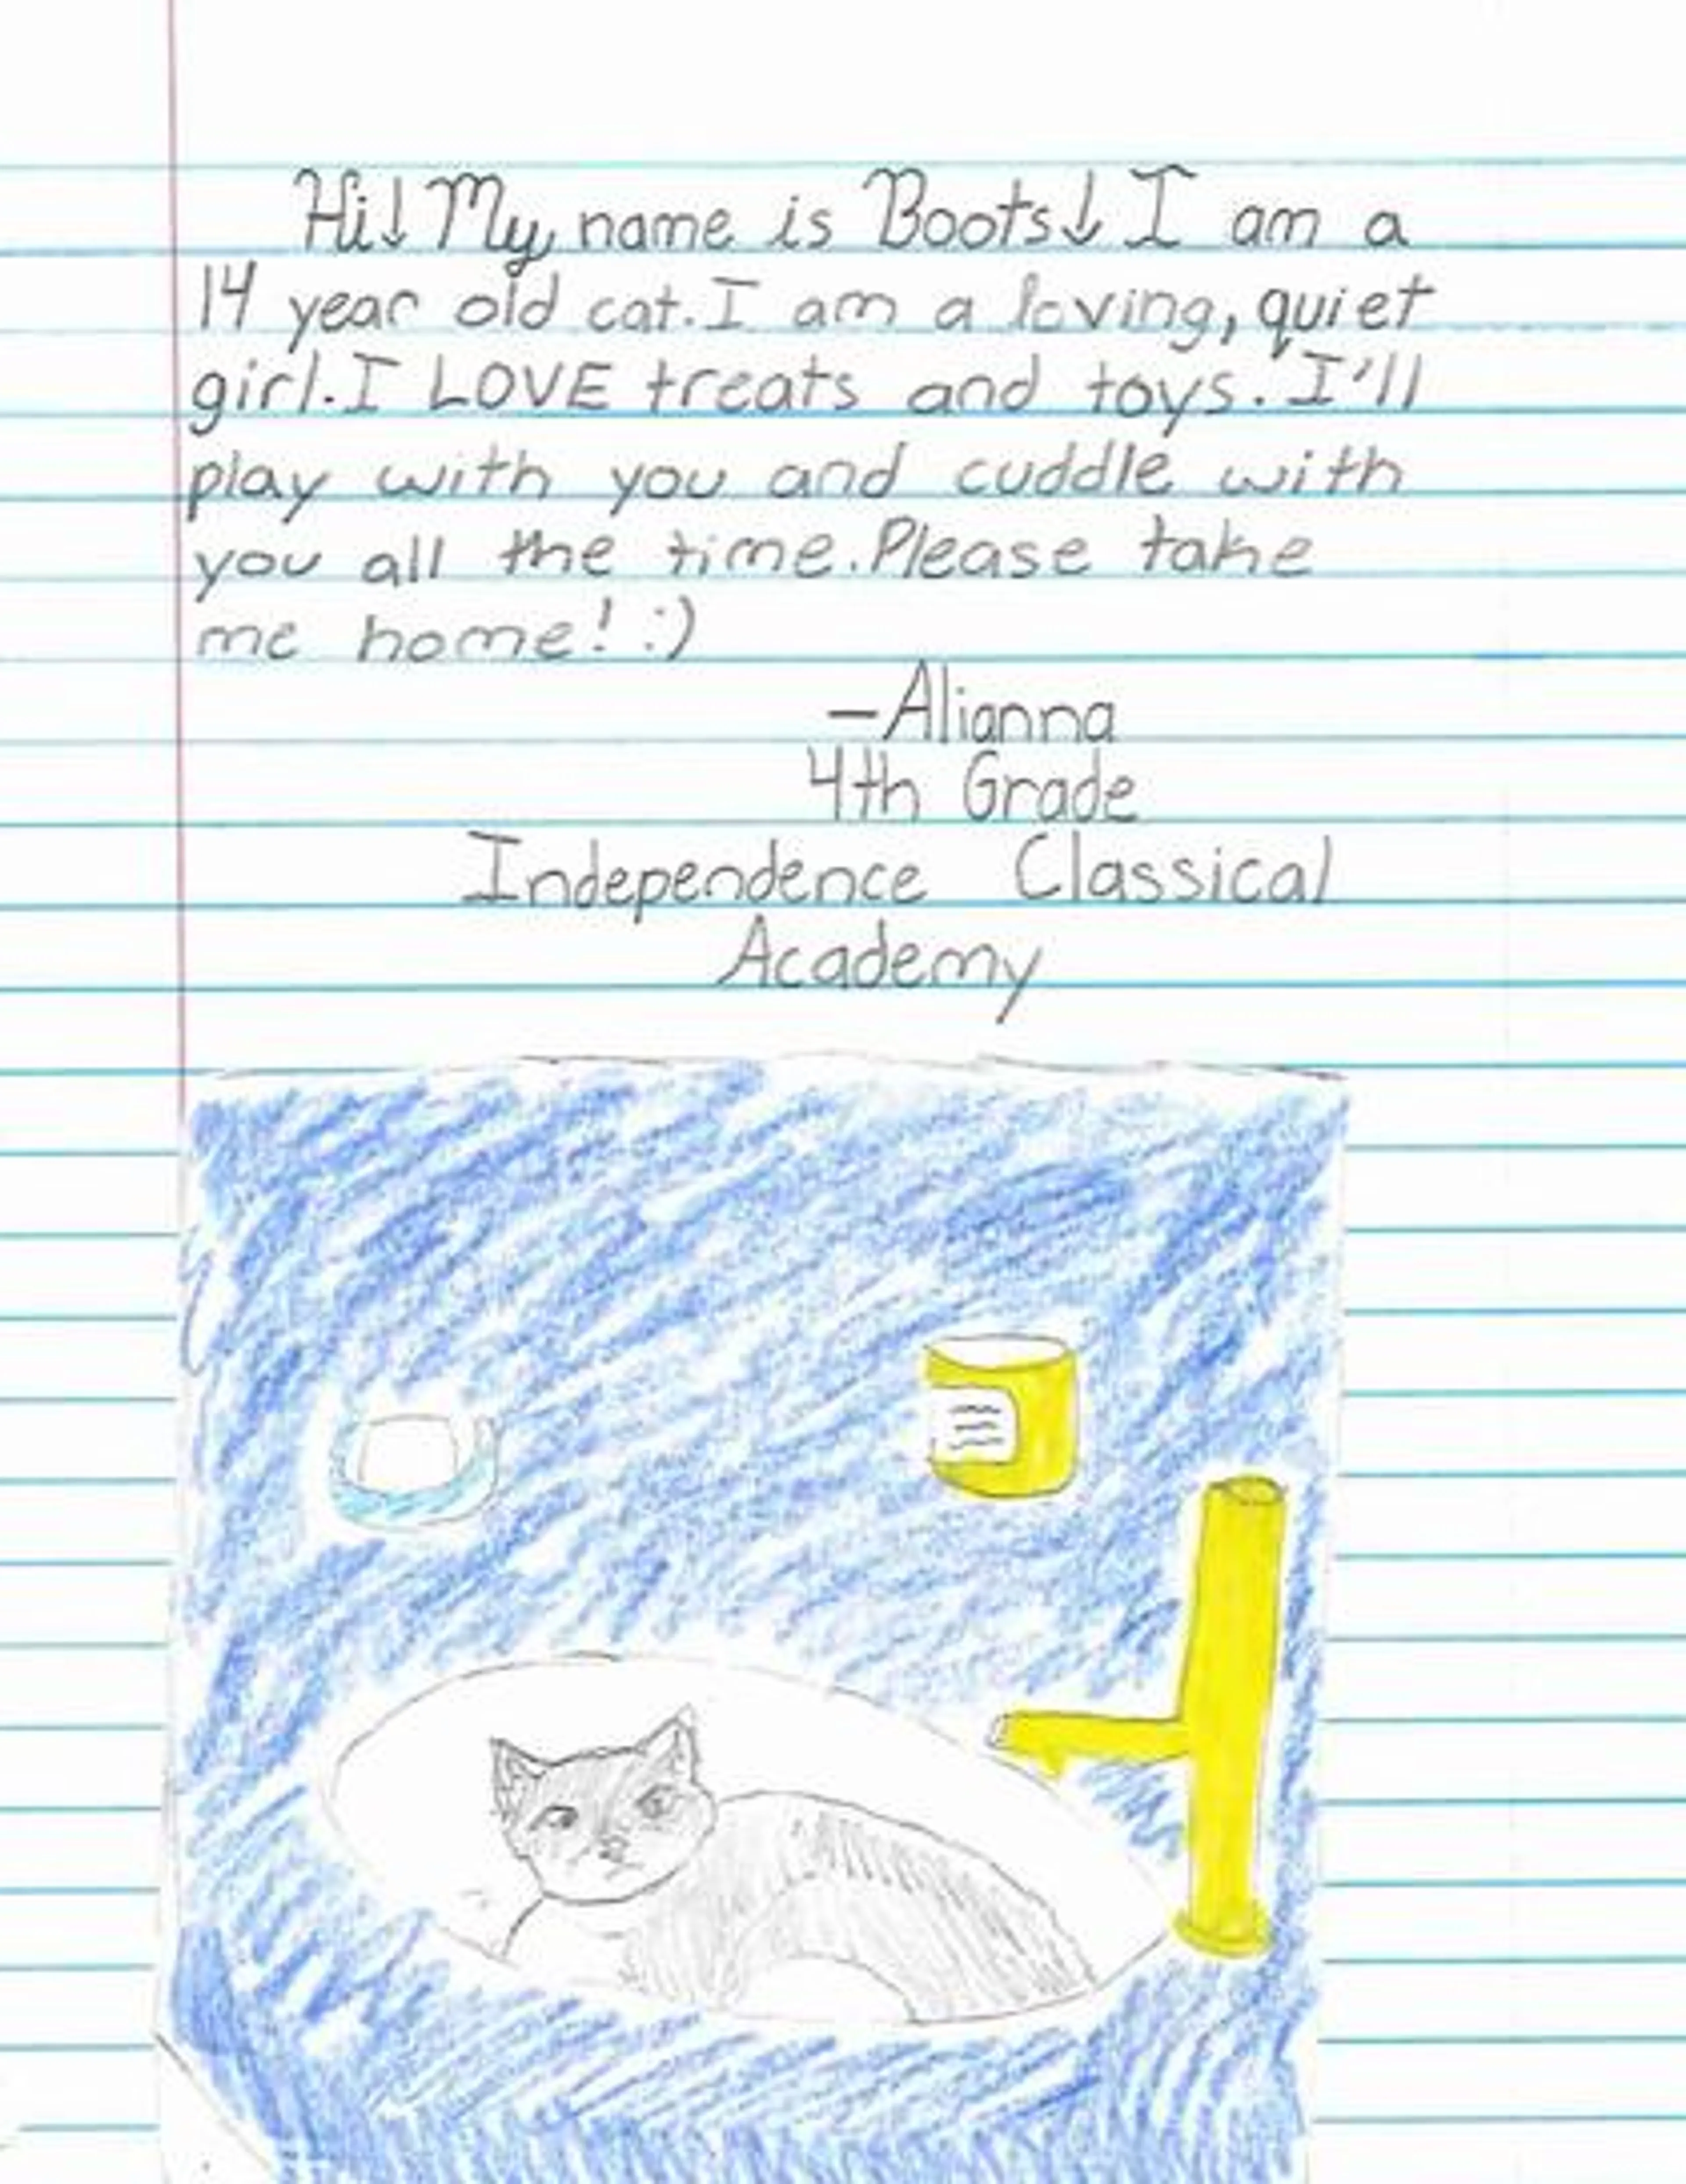 Hi! My name is Boots! I am a
14 year old cat. I am a loving, quiet
girl. I LOVE treats and toys. I'll
play with you and cuddle with
you all the time. Please take
me home! :)
—Alianna
4th Grade
Independence Classical
Academy